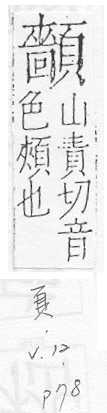 山責切音
色頰也
頁.
V. 12.
p78